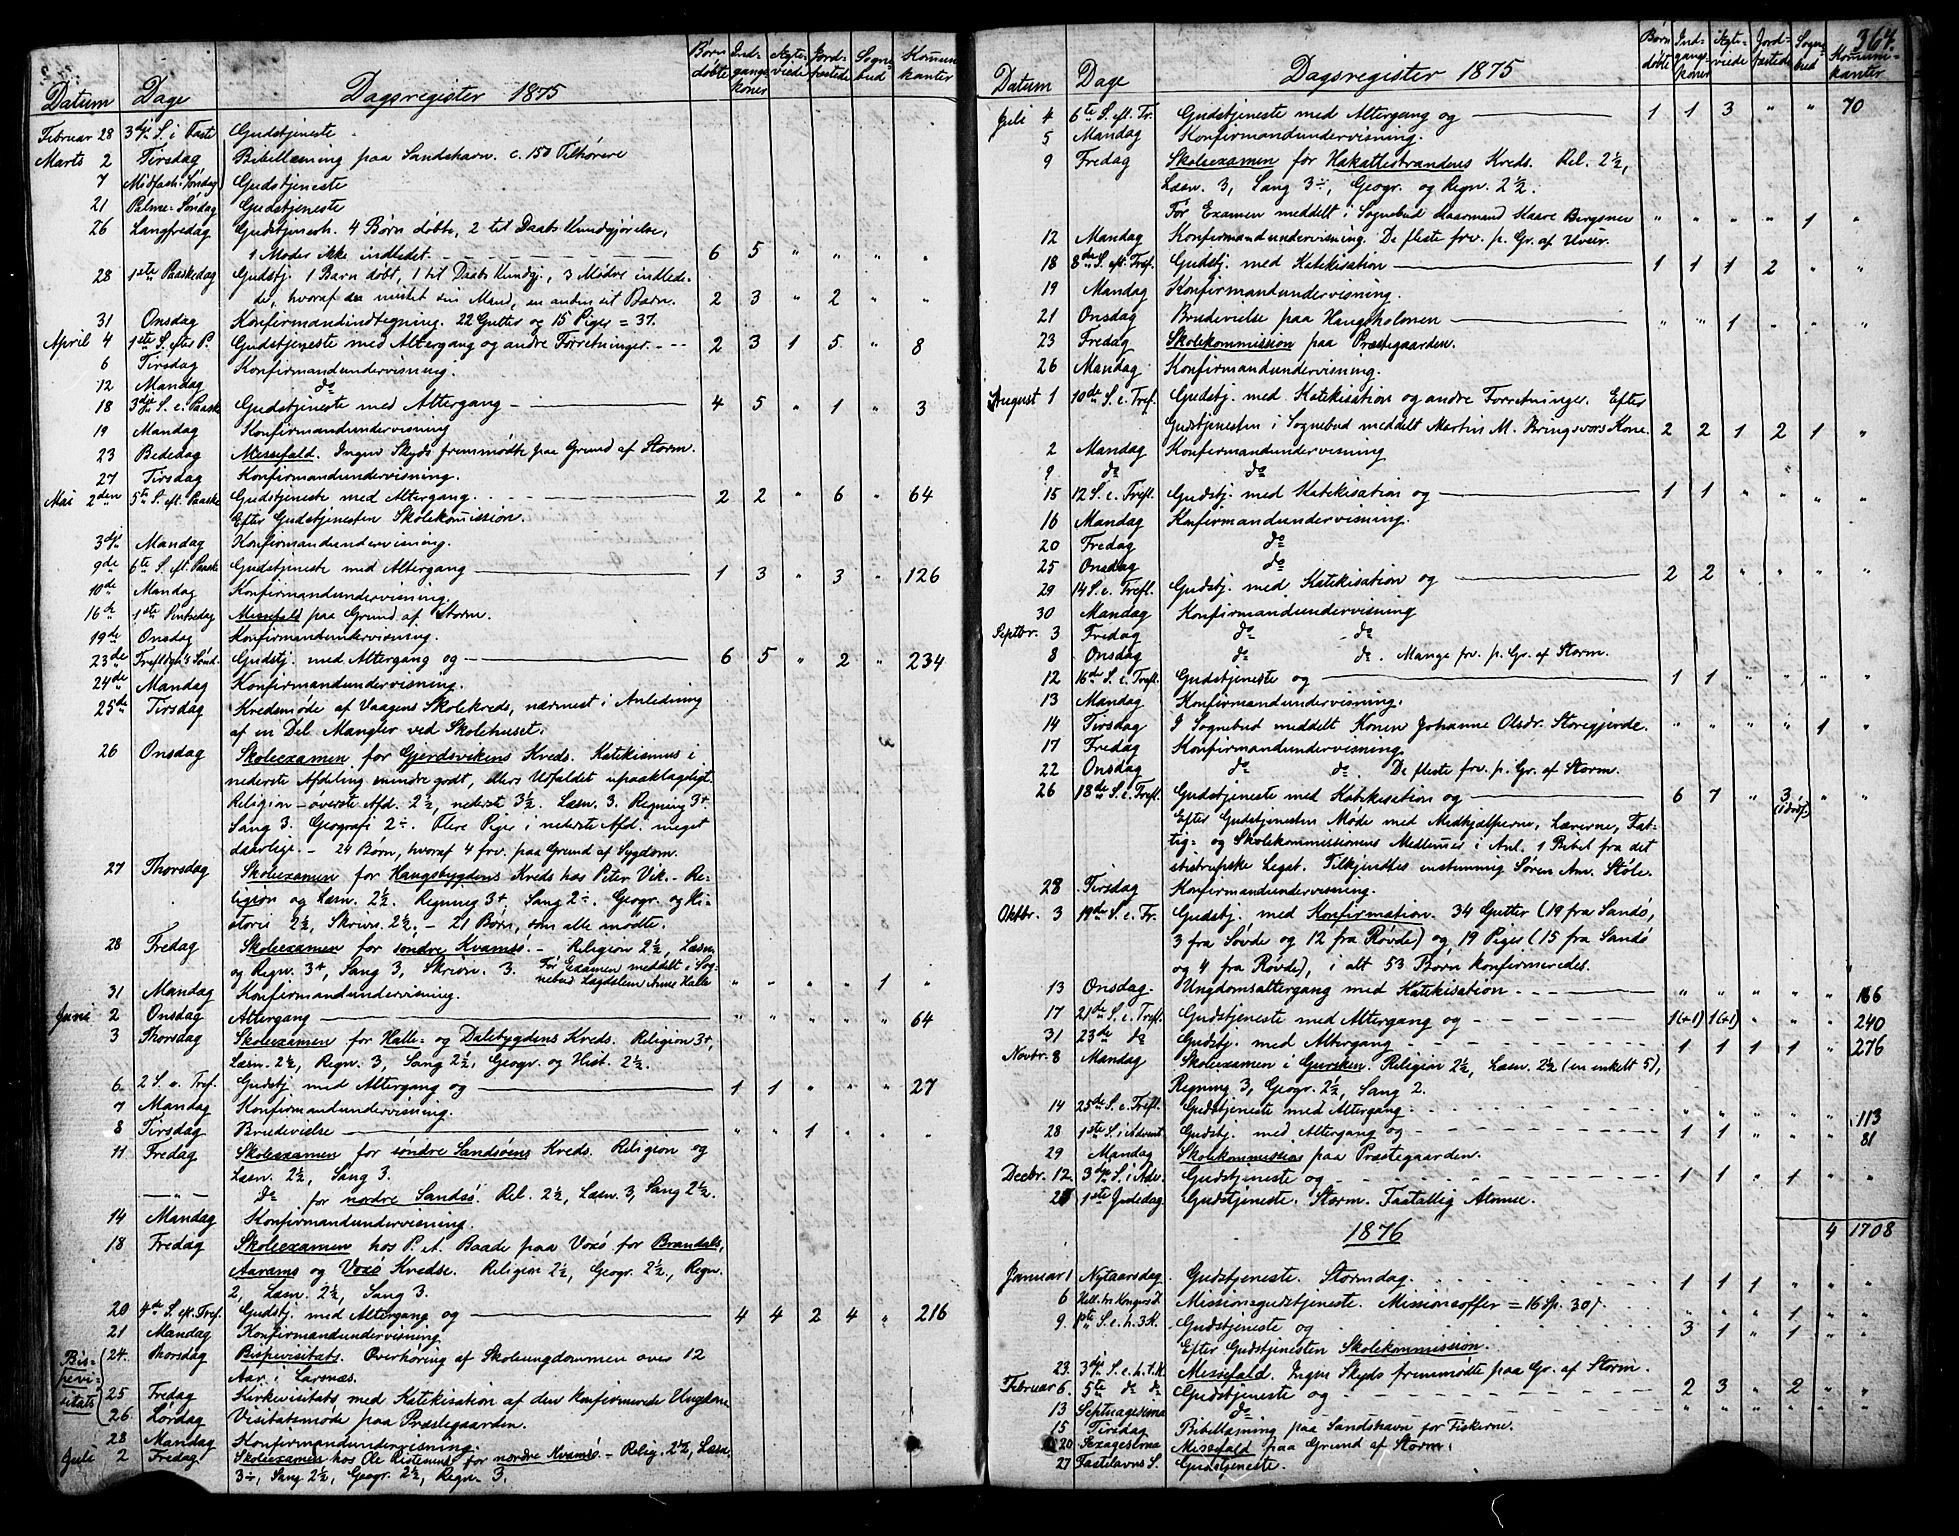 Datum Dage Dagsregister 1875 Børn døbte Ind-gangs-koner Ægte-viede Jord-fæstede Sogne-bud Kommuni-kanter
Februar 28 3die S. i Faste Gudstjeneste
Marts 2 Tirsdag Bibellæsning paa Sandshavn. c. 150 Tilhørere
7 Midfaste Søndag Gudstjeneste
21 Palme-Søndag Gudstjeneste
26 Langfredag Gudstjenest. 4 Børn døbte, 2 til Daabs Kundgjørelse,
1 Moder ikke indledet. 6 5 " " " "
28 1ste Paaskedag Gudstj. 1 Barn døbt, 1 til Daabs Kundg., 3 Mødre indlede-
de, hvoraf een mistet sin Mand, en anden sit Barn. 2 3 " 2 " "
31 Onsdag Konfirmandindtegning. 22 Gutter og 15 Piger = 37.
April 4 1ste S. efter P. Gudstjeneste med Altergang og andre Forretninger. 2 3 1 5 " 8
6 Tirsdag Konfirmandundervisning.
12 Mandag do
18 3die S. e. Paaske Gudstjeneste med Altergang 4 5 " 1 " 3
19 Mandag Konfirmandundervisning
23 Bededag Messefald. Ingen Skyds fremmødte paa Grund af Storm.
27 Tirsdag Konfirmandundervisning.
Mai 2den 5te S. eft. Paaske Gudstjeneste med Altergang. 2 2 " 6 " 64
Efter Gudstjenesten Skolekomission.
3die Mandag Konfirmandundervisning.
9de 6te S. eft. Paaske Gudstjeneste med Altergang 1 3 " 3 " 126
10de Mandag Konfirmandundervisning.
16de 1ste Pintsedag Messefald paa Grund af Storm.
19de Onsdag Konfirmandundervisning.
23de Trefoldgh's Sønd. Gudstj. med Altergang og 6 5 " 2 " 234
24de Mandag Konfirmandundervisning.
25de Tirsdag Kredsmøde af Vaagens Skolekreds, nærmest i Anledning
af en Del Mangler ved Skolehuset.
26 Onsdag Skoleexamen for Gjerdsvikens Kreds. Katekismus i
nederste Afdeling mindre godt, ellers Udfaldet upaaklageligt.
Religion - överste Afd. 2½, nederst 3½. Læsn. 3. Regning 3+.
Sang 3. Geografi 2÷. Flere Piger i nederste Afd. meget
daarlige. - 24 Børn, hvoraf 4 frv. paa Grund af Sygdom.
27 Thorsdag Skoleexamen for Haugsbygdens Kreds hos Peter Vik. - Re-
ligion og Læsn. 2½. Regning 3+, Sang 2÷. Geogr. og Hi-
storie 2½, Skrivn. 2½. - 21 Børn, som alle mødte.
28 Fredag Skoleexamen for søndre Kvamsö. - Religion 2½, Læsn.
og Regn. 3+, Sang 3, Skrivn. 3. Før Examen meddelt i Sog-
nebud Lægdslem Anne Halle " " " " 1 "
31 Mandag Konfirmandundervisning.
Juni 2 Onsdag Altergang " " " " " 64
3 Thorsdag Skoleexamen for Halle- og Dalsbygdens Kreds. Religion 3+,
Læsn. 2½, Regn. 3, Sang 2½, Geogr. og Hist. 2½.
6 2 S. e. Tref. Gudstj. med Altergang og 1 1 " " " 27
7 Mandag Konfirmandundervisning.
8 Tirsdag Brudevielse " " 1 " " "
11 Fredag Skoleexamen for søndre Sandsöens Kreds. Religion og
Læsn. 2½, Sang 3.
— " — do for nordre Sandsö. Rel. 2½, Læsn. 3, Sang 2½.
14 Mandag Konfirmandundervisning.
18 Fredag Skoleexamen hos P. A. Baade paa Voxö for Brandals,
Aarams og Voxö Kredse. Religion 2½, Geogr. 2½, Regn.
2, Læsn. 2½, Sang 3.
20 4de S. eft. Tref. Gudstj. med Altergang og 4 4 2 4 " 216
21 Mandag Konfirmandundervisning.
Bis-pevi-sitats 24. Thorsdag Bispevisitats. Overhøring af Skoleungdommen over 12
Aar i Larsnæs.
25 Fredag Kirkevisitats med Katekisation af den konfirmerede Ungdom
26 Lørdag Visitatsmøde paa Præstegaarden.
28 Mandag Konfirmandundervisning.
Juli 2 Fredag Skoleexamen hos Ole Ristenus for nordre Kvamsö. - Relig. 2½, Læsn.
3÷, Sang 2½, Geogr. 2½, Regn. 3.
364.
Datum Dage Dagsregister 1875 Børn døbte Ind-gangs-koner Ægte-viede Jord-fæstede Sogne-bud Kommuni-kanter
Juli 4 6te S. eft. Tr. Gudstjeneste med Altergang og 1 1 3 " " 70
5 Mandag Konfirmandundervisning.
9 Fredag Skoleexamen for Hakallestrandens Kreds. Rel. 2½,
Læsn. 3, Sang 3÷, Geogr. og Regn. 2½.
Før Examen meddelt i Sognebud Kaarmand Kaare Bergsnev " " " " 1 "
12 Mandag Konfirmandundervisning. De fleste frv. p. Gr. af Uveir.
18 8de S. eft. Tref. Gudstj. med Katekisation 1 1 1 2 " "
19 Mandag Konfirmandundervisning.
21 Onsdag Brudevielse paa Haugsholmen " " 1 " " "
23 Fredag Skolekommission paa Præstegaarden.
26 Mandag Konfirmandundervisning.
August 1 10de S. e. Tref. Gudstj. med Katekisation og andre Forretninger. Efter
Gudstjenesten i Sognebud meddelt Martin M. Bringsvors Kone. 2 2 1 2 1 "
2 Mandag Konfirmandundervisning
9 do do
15 12 S. e. Trefl. Gudstj. med Katekisation og 1 1 " " " "
16 Mandag Konfirmandundervisning.
20 Fredag do
25 Onsdag do
29 14 S. e. Trefl. Gudstj. med Katekisation og 2 2 " " " "
30 Mandag Konfirmandundervisning
Septbr. 3 Fredag do - do
8 Onsdag do do. Mange frv. p. Gr. af Storm.
12 16de S. e. Trefl. Gudstjeneste og 1 1 " " " "
13 Mandag Konfirmandundervisning.
14 Tirsdag I Sognebud meddelt Konen Johanne Olsdr. Storegjerde. " " " " 1 "
17 Fredag Konfirmandundervisning
22 Onsdag do do. De fleste frv. p. Gr. af Storm.
26 18de S. e. Trefl. Gudstjeneste med Katekisation og 6 7 " 3 " "
Efter Gudstjenesten Møde med Medhjælperne, Lærerne, Fat-
tig- og Skolekommissionens Medlemmer i Anl. 1 Bibel fra det
stistrupske Legat. Tilkjendtes enstemmig Søren An. Støle.
28 Tirsdag Konfirmandundervisning.
Oktbr. 3 19de S. e. Tr. Gudstj. med Konfirmation. 34 Gutter (19 fra Sandö,
3 fra Søvde og 12 fra Røvde) og 19 Piger (15 fra Sandö
og 4 fra Røvde), i alt 53 Børn konfirmeredes.
13 Onsdag. Ungdomsaltergang med Katekisation " " " " " 166
17 21de S. e. Trefl. Gudstjeneste med Altergang og 1(+1) 1(+1) " " " 240
31 23de do Gudstj. med Altergang 1 1 1 1 " 276
Novbr. 8 Mandag Skoleexamen i Gursken. Religion 2½, Læsn. 2½ (en enkelt 5),
Regning 3, Geogr. 2½, Sang 2.
14 25de S. e. Trefl. Gudstjeneste med Altergang " " " " " 113
28 1ste S. i Advent Gudstj. med Altergang og 1 1 " " " 81
29 Mandag Skolekommission paa Præstegaarden.
Decbr. 12 3die S. i Adv. Gudstjeneste og 1 1 " 1 " "
25 1ste Juledag Gudstjeneste. Storm. Faatallig Almue.
4 1708
1876
Januar 1 Nytaarsdag Gudstjeneste. Stormdag. 1 1 1 " " "
6 Hell. tre Kongers D. Missionsgudstjeneste. Missionsoffer = 16 Sp. " " " 1 " "
9. 1ste S. e. h. 3 K. Gudstjeneste og 3 1 " 1 " "
Efter Gudstjenesten Skolekommission.
23 3die S. e. h. t. K. Messefald. Ingen Skyds fremmødte paa Gr. af Storm.
Februar 6. 5te do do Gudstjeneste og 2 3 " 2 " "
13 Septuagesima do " " " " " "
15 Tirsdag Bibellæsning paa Sandshavn for Fiskerne.
20 Sexagesima Messefald paa Grund af Storm.
27 Fastelavns S. Gudstjeneste.